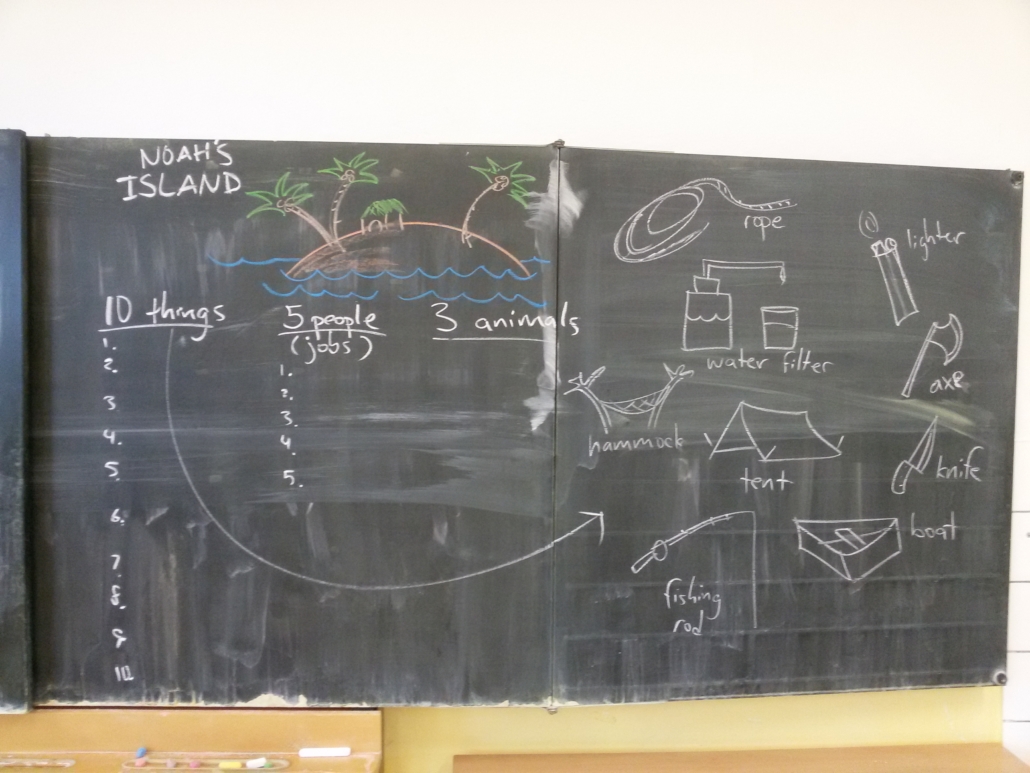 NOAH'S
ISLAND
10 things
1.
2.
3
4.
5.
6.
7.
8.
9
10
5 people
(jobs)
1.
2.
3.
4.
5.
3 animals
rope
lighter
water filter
axe
hammock
tent
knife
boat
fishing
rod